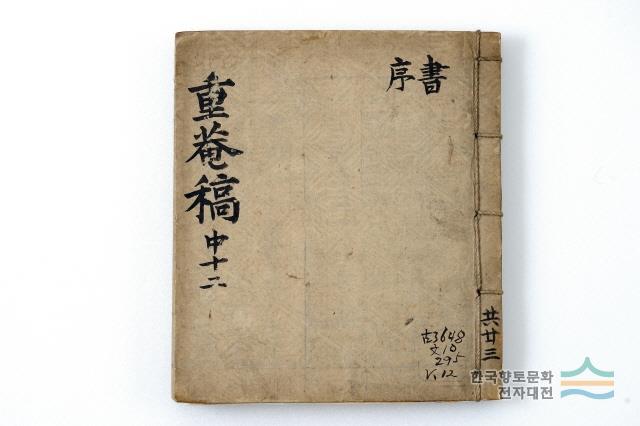 書
序
重菴稿 中十二
共廿三
古3648
文10
295
V.12
한국향토문화
전자대전